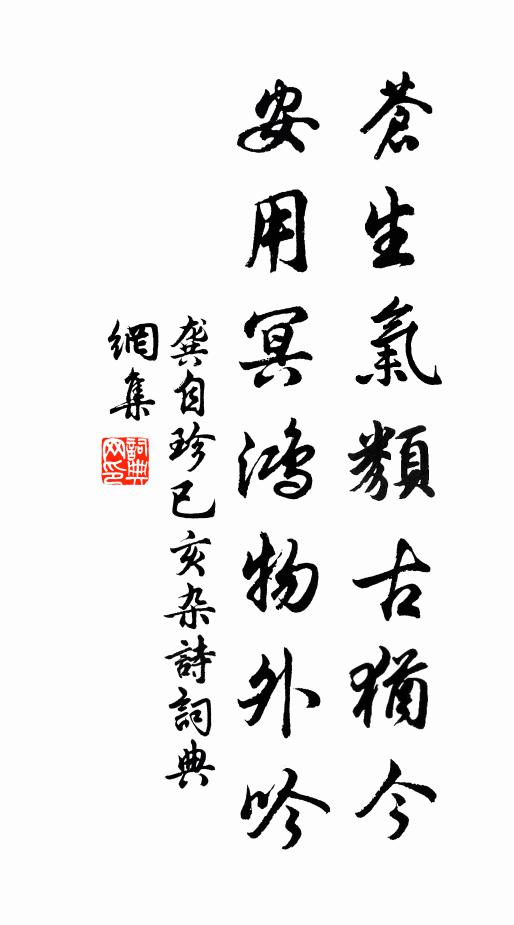 蒼生氣類古猶今
安用冥鴻物外吟
龔自珍已亥杂詩詞典
網集
詞典網印